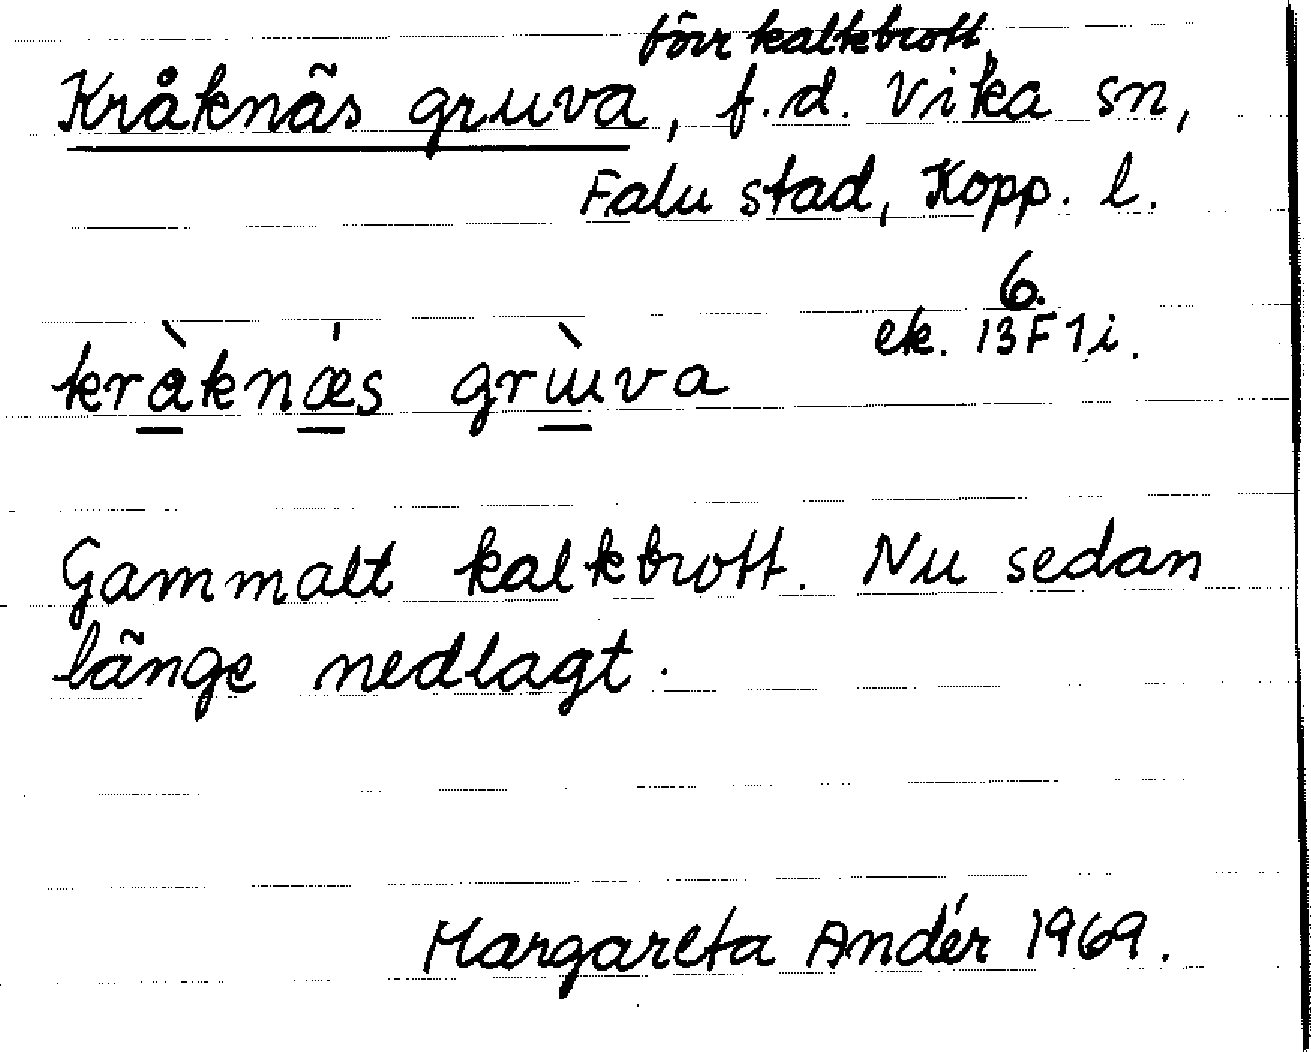 förr kalkbrott,
Kråknäs gruva, f.d. Vika sn,
Falu stad, Kopp. l.
6.
ek. 13F1i.
kràknǽs grùva
Gammalt kalkbrott. Nu sedan
länge nedlagt.
Margareta Andér 1969.